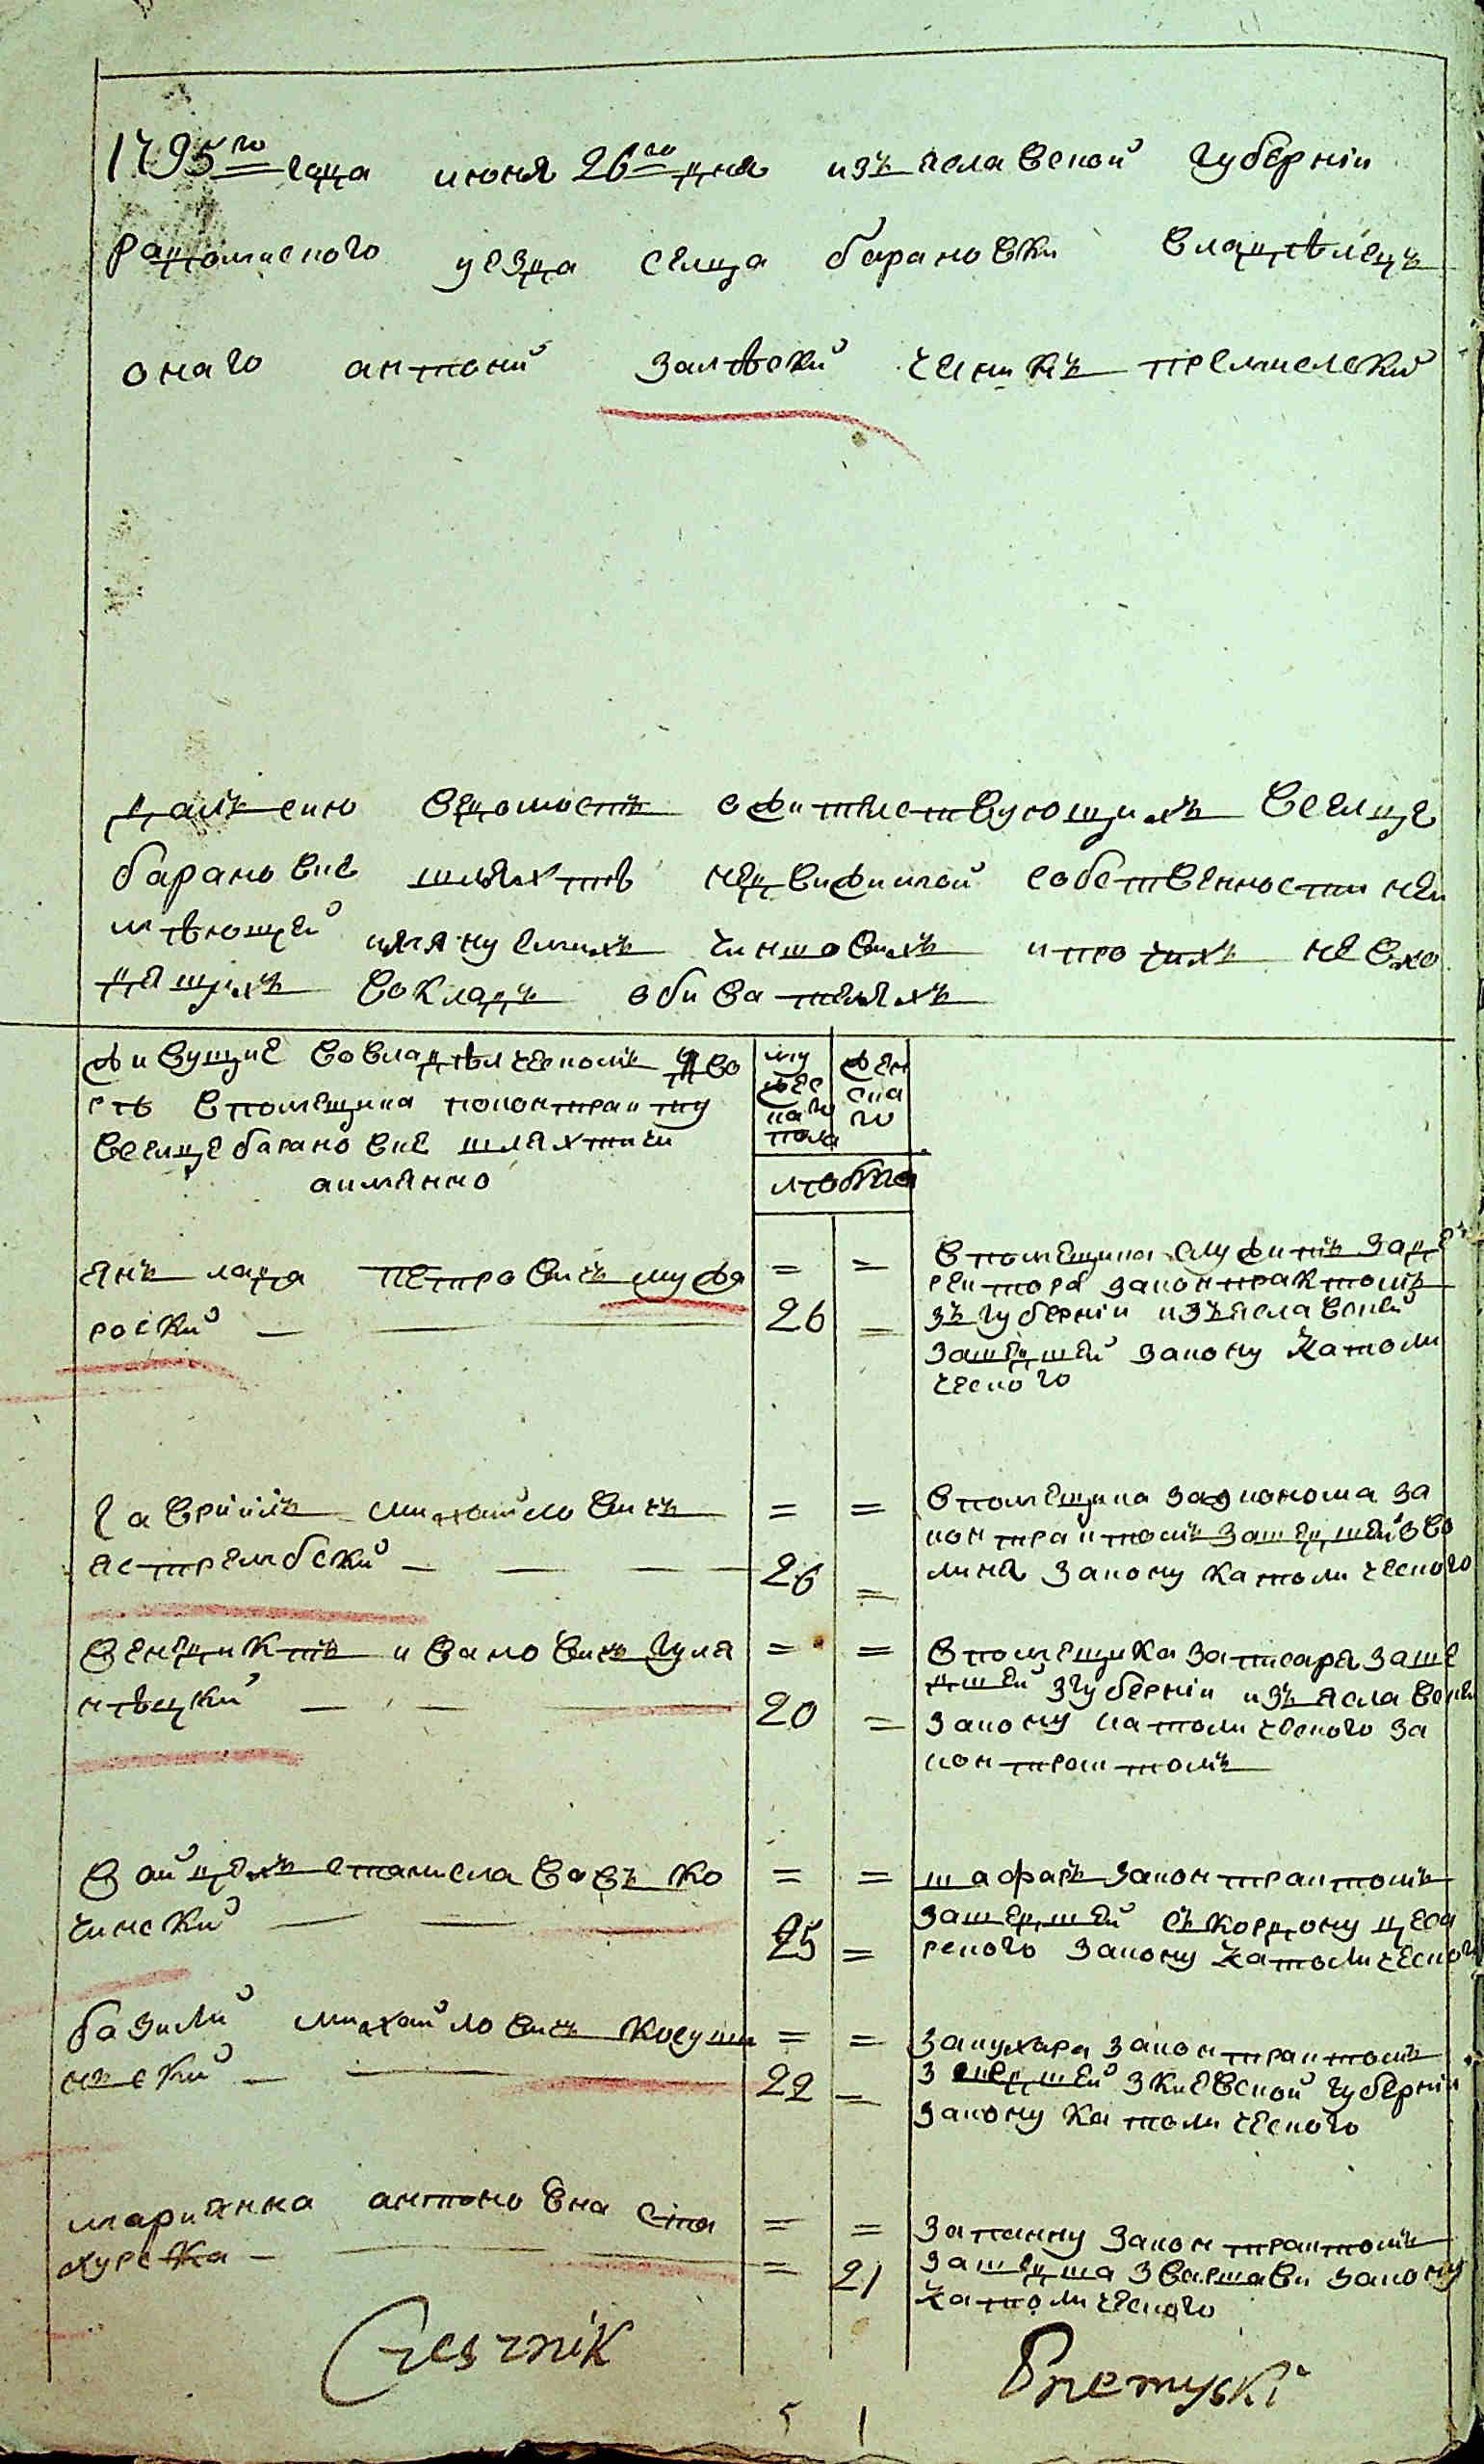 1795го года июня 26го дня изъяславской губернiи
радомиского уезда селца барановки владѣлецъ
онаго антоний залѣский чешникъ премиселский
далъ сию ведомость о жителствующихъ в селце
барановке шляхтѣ недвижимой собственности неи
мѣющей и помянуемихъ чиншовихъ и протчихъ не вхо
дящихъ в окладъ обивателяхъ
живущие во владѣлческомъ дво
рѣ в помещика по контракту
в селце барановке шляхтичи
а имянно
муж
еска го
пола
жен
ска
го
лѣта
янъ лада петровичъ мужа
ровский
= =
26 =
в помещика служитъ за ди
ректора за контрактомъ
зъ губернiи изъяславской
зашедшей закону католи
ческого
гаврiилъ михайловичъ
ястрембский
= =
26 =
в помещика за эконома за
контрактомъ зашедшей з во
линя закону католического
венедиктъ ивановичъ гуля
нѣцкий
= =
20 =
в помещика за писаря заше
дшей з губернiи изъяславской
закону католического за
контрактомъ
войцехъ станиславовъ ко
чинский
= =
25 =
шафаръ за контрактомъ
зашедшей съ кордону цеса
рского закону католического
базилий михайловичъ косуши
нский
= =
22 =
за кухара за контрактомъ
зашедшей з киевской губернiи
закону католического
марианна антоновна ста
хурска
= =
= 21
за панну за контрактомъ
зашедша з варшави закону
католического
Czesznik Premyski
5 1